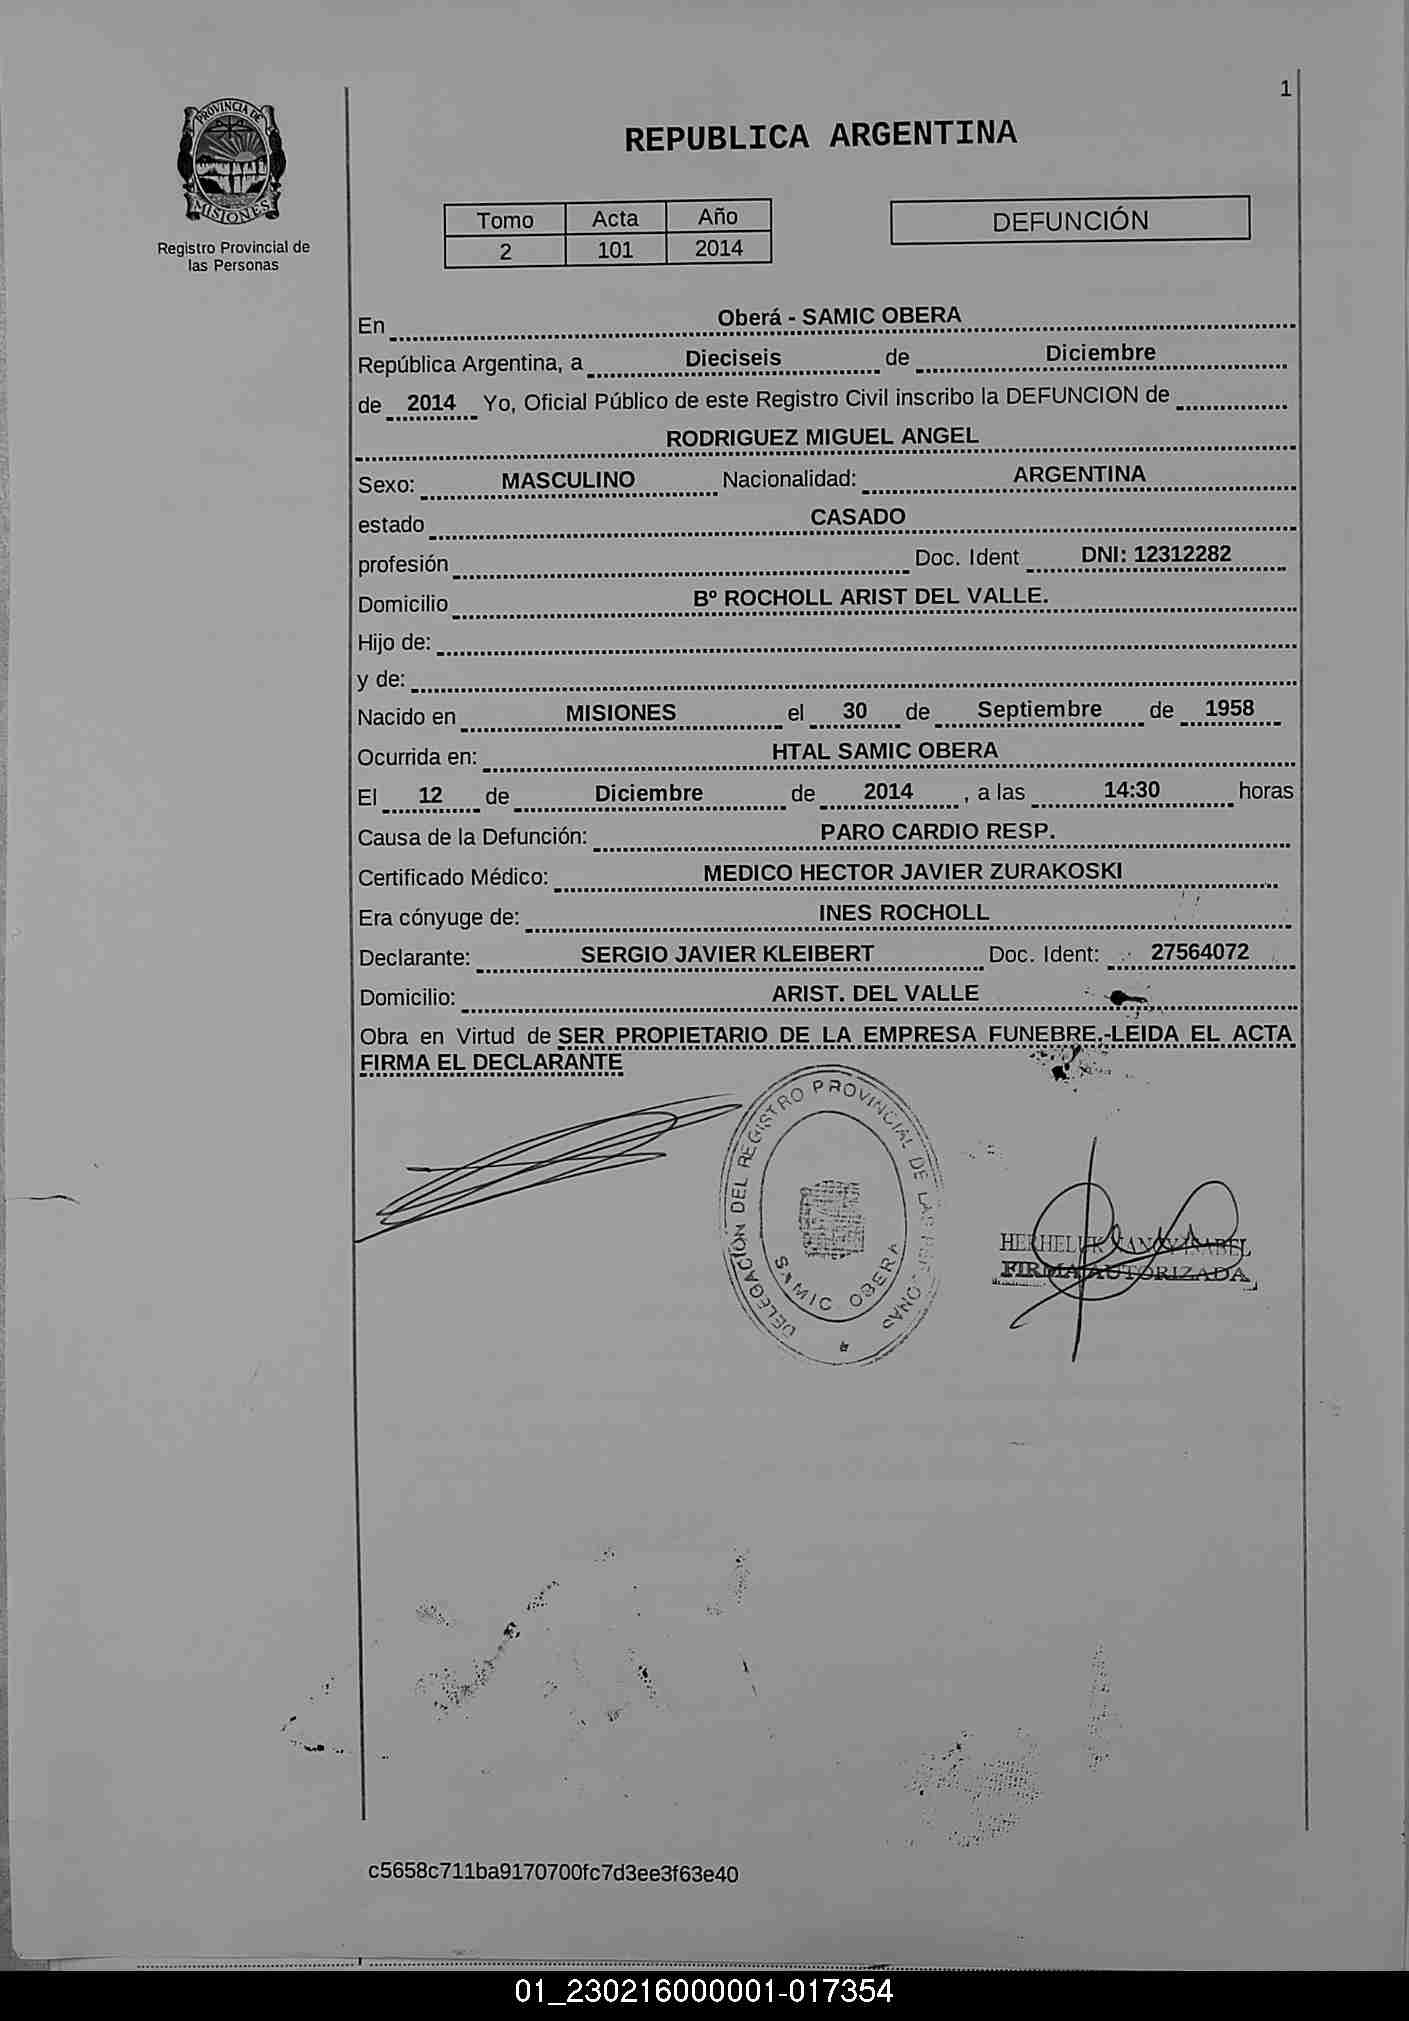 1
PROVINCIA DE
MISIONES
Registro Provincial de
las Personas
REPUBLICA ARGENTINA
Tomo Acta Año
2 101 2014
DEFUNCIÓN
En Oberá - SAMIC OBERA
República Argentina, a Dieciseis de Diciembre
de 2014 Yo, Oficial Público de este Registro Civil inscribo la DEFUNCION de
RODRIGUEZ MIGUEL ANGEL
Sexo: MASCULINO Nacionalidad: ARGENTINA
estado CASADO
profesión Doc. Ident DNI: 12312282
Domicilio Bº ROCHOLL ARIST DEL VALLE.
Hijo de:
y de:
Nacido en MISIONES el 30 de Septiembre de 1958
Ocurrida en: HTAL SAMIC OBERA
El 12 de Diciembre de 2014 , a las 14:30 horas
Causa de la Defunción: PARO CARDIO RESP.
Certificado Médico: MEDICO HECTOR JAVIER ZURAKOSKI
Era cónyuge de: INES ROCHOLL
Declarante: SERGIO JAVIER KLEIBERT Doc. Ident: 27564072
Domicilio: ARIST. DEL VALLE
Obra en Virtud de SER PROPIETARIO DE LA EMPRESA FUNEBRE.-LEIDA EL ACTA
FIRMA EL DECLARANTE
DELEGACIÓN DEL REGISTRO PROVINCIAL DE LAS PERSONAS
SAMIC OBERA
ISABEL
FIRMA AUTORIZADA
c5658c711ba9170700fc7d3ee3f63e40
01_230216000001-017354